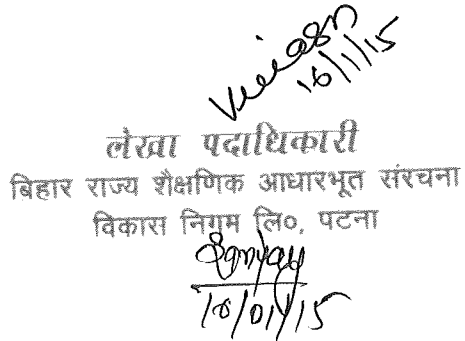 16/1/15
लेखा पदाधिकारी
बिहार राज्य शैक्षणिक आधारभूत संरचना
विकास निगम लि०, पटना
16/01/15